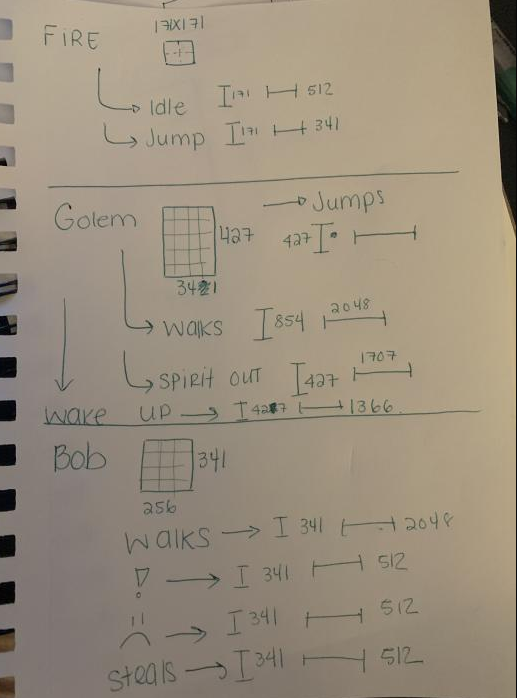 FIRE 171X171
Idle 171 512
Jump 171 341
Golem 427 Jumps
427
341
walks 854 2048
SPIRIT OUT 427 1707
wake up 427 1366
Bob 341
256
walks 341 2048
! 341 512
:( 341 512
steals 341 512